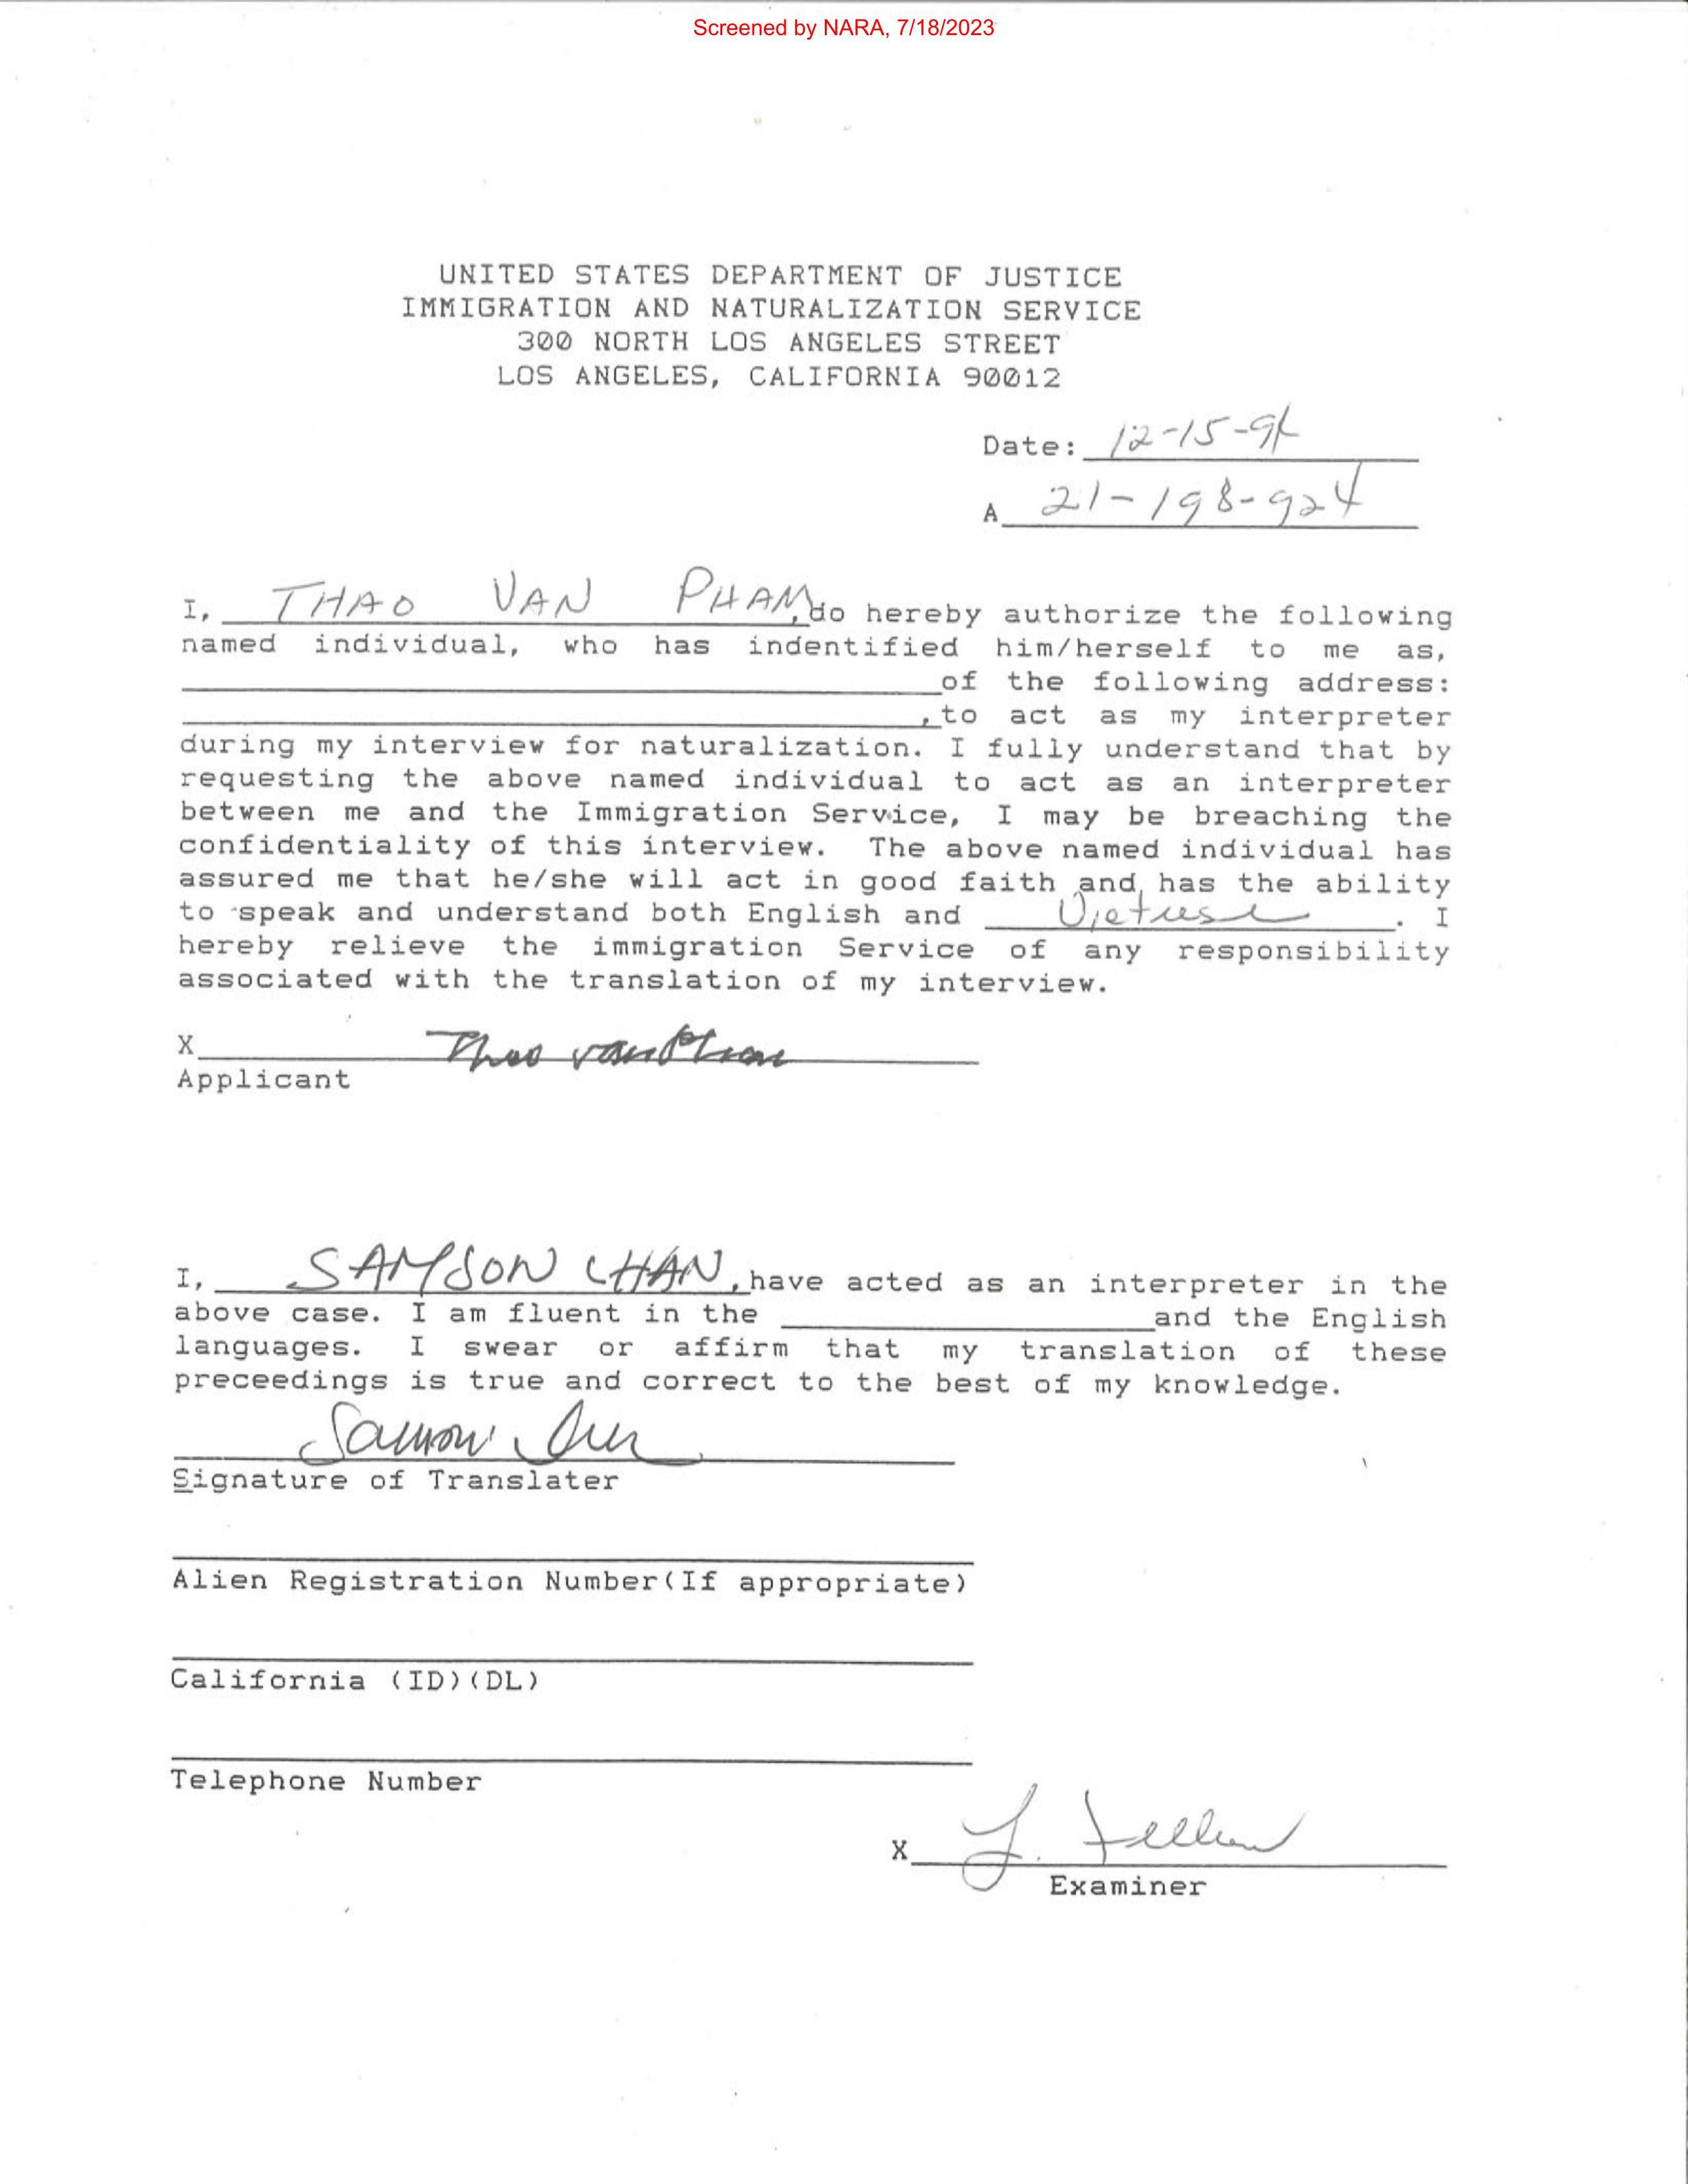 Screened by NARA, 7/18/2023
UNITED STATES DEPARTMENT OF JUSTICE
IMMIGRATION AND NATURALIZATION SERVICE
300 NORTH LOS ANGELES STREET
LOS ANGELES, CALIFORNIA 90012
Date: 12-15-94
A 21-198-924
I, THAO VAN PHAM, do hereby authorize the following
named individual, who has indentified him/herself to me as,
of the following address:
, to act as my interpreter
during my interview for naturalization. I fully understand that by
requesting the above named individual to act as an interpreter
between me and the Immigration Service, I may be breaching the
confidentiality of this interview. The above named individual has
assured me that he/she will act in good faith and has the ability
to speak and understand both English and . I
hereby relieve the immigration Service of any responsibility
associated with the translation of my interview.
X Thao van Pham
Applicant
I, SAMSON CHAN, have acted as an interpreter in the
above case. I am fluent in the and the English
languages. I swear or affirm that my translation of these
preceedings is true and correct to the best of my knowledge.
Signature of Translater
Alien Registration Number(If appropriate)
California (ID)(DL)
Telephone Number
X
Examiner